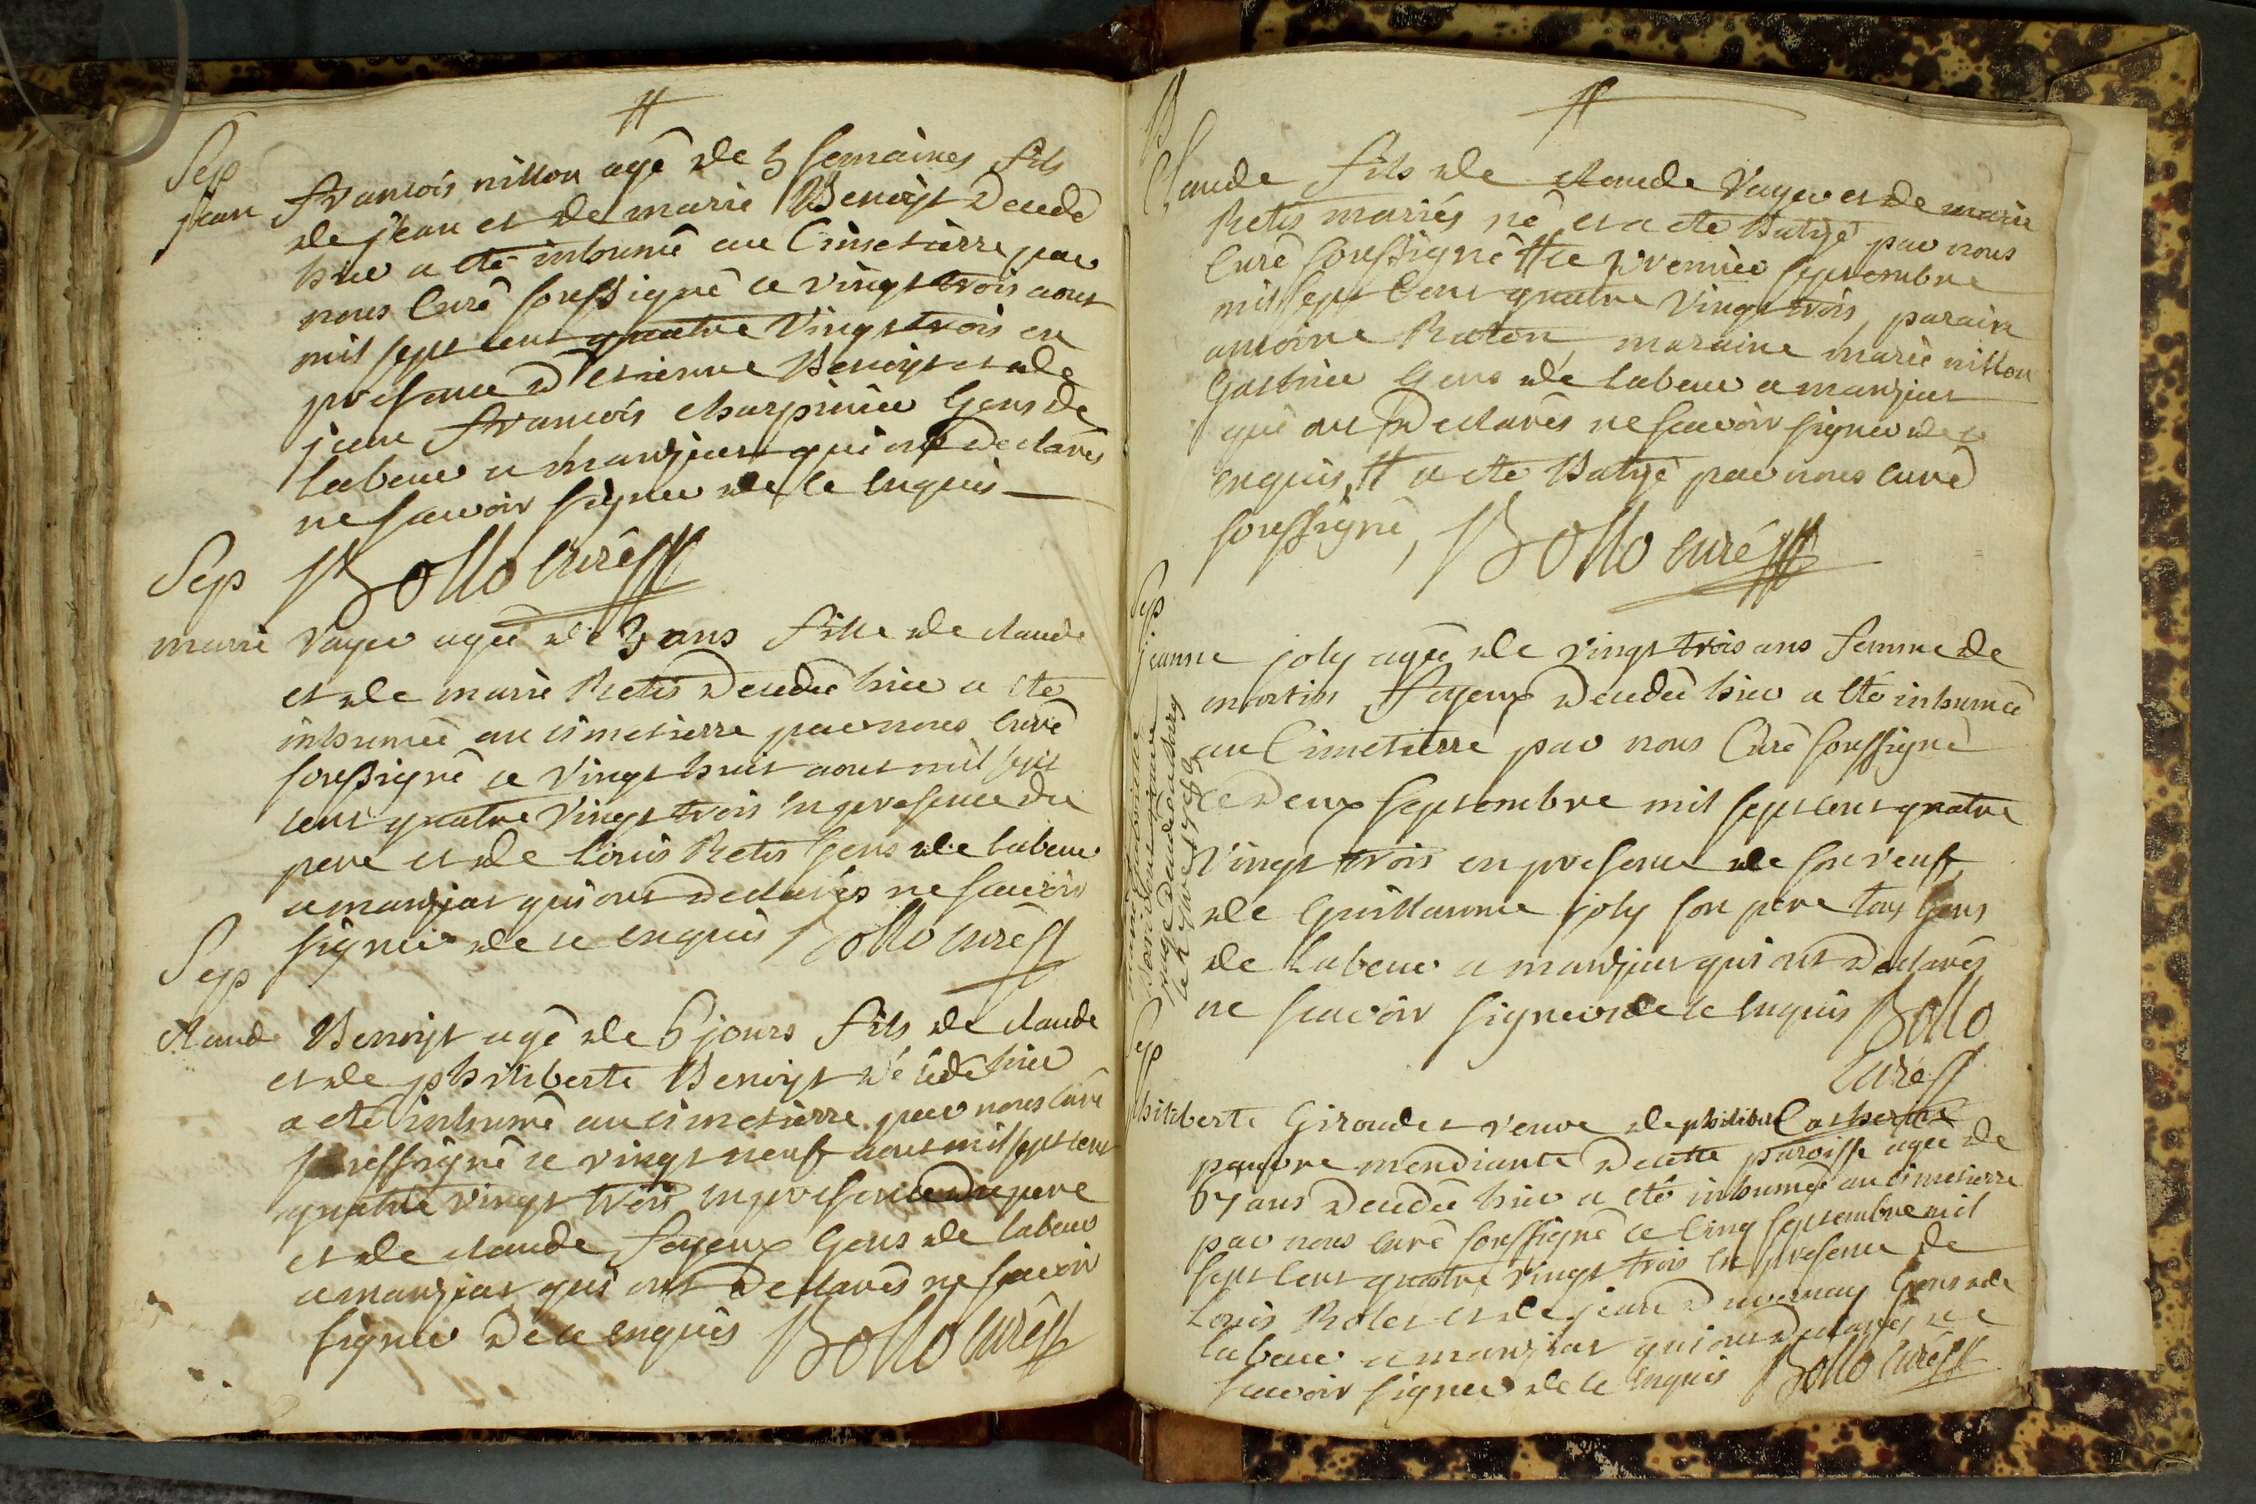 Sep
jean françois nillon agé de 5 semaines fils
de jean et de marie Benoist decedé
hier a eté inhumé au Cimetierre par
nous Curé soussigné ce vingt trois aout
mil sept cent quatre vingt trois en
presence d'etienne Benoist et de
jean françois charpinier Gens de
labeur a manziat qui ont declarés
ne scavoir signer de ce enquis
Bollo curé
Sep
marie vayer agée de 3 ans fille de claude
et de marie Retis decedée hier a eté
inhumée au cimetierre par nous Curé
soussigné ce vingt huit aout mil sept
cent quatre vingt trois en presence du
pere et de louis Retis Gens de labeur
a manziat qui ont declarés ne scavoir
signer de ce enquis Bollo curé
Sep
claude Benoist agé de 6 jours fils de claude
et de philiberte Benoist décedé hier
a eté inhumé au cimetierre par nous Curé
soussigné ce vingt neuf aout mil sept cent
quatre vingt trois en presence du pere
et de claude foyeux Gens de labeur
a manziat qui ont declarés ne scavoir
signer de ce enquis Bollo curé
B
Claude fils de claude vayer et de marie
Retis mariés né et a eté Batizé par nous
Curé soussigné # ce premier septembre
mil sept cent quatre vingt trois, parain
antoine Raton, maraine marie nillon
Gens de labeur a manziat
qui ont declarés ne scavoir signer de ce
enquis, # a eté Batizé par nous curé
soussigné, Bollo curé
Sep
jeanne joly agée de vingt trois ans femme de
martin foyeux decedée hier a eté inhumée
au Cimetierre par nous Curé soussigné
ce deux septembre mil sept cent quatre
vingt trois en presence de son veuf,
de Guillaume joly son pere tous Gens
de labeur a manziat qui ont declarés
ne scavoir signer de ce enquis Bollo
curé
Sep
philiberte Giroudet veuve de philibert Catherine
pauvre mendiante de cette paroisse agée de
67 ans decedée hier a eté inhumée au cimetierre
par nous curé soussigné ce cinq septembre mil
sept cent quatre vingt trois en presence de
Louis Rolet et de jean duvernay Gens de
labeur a manziat qui ont declarés ne
scavoir signer de ce enquis Bollo curé